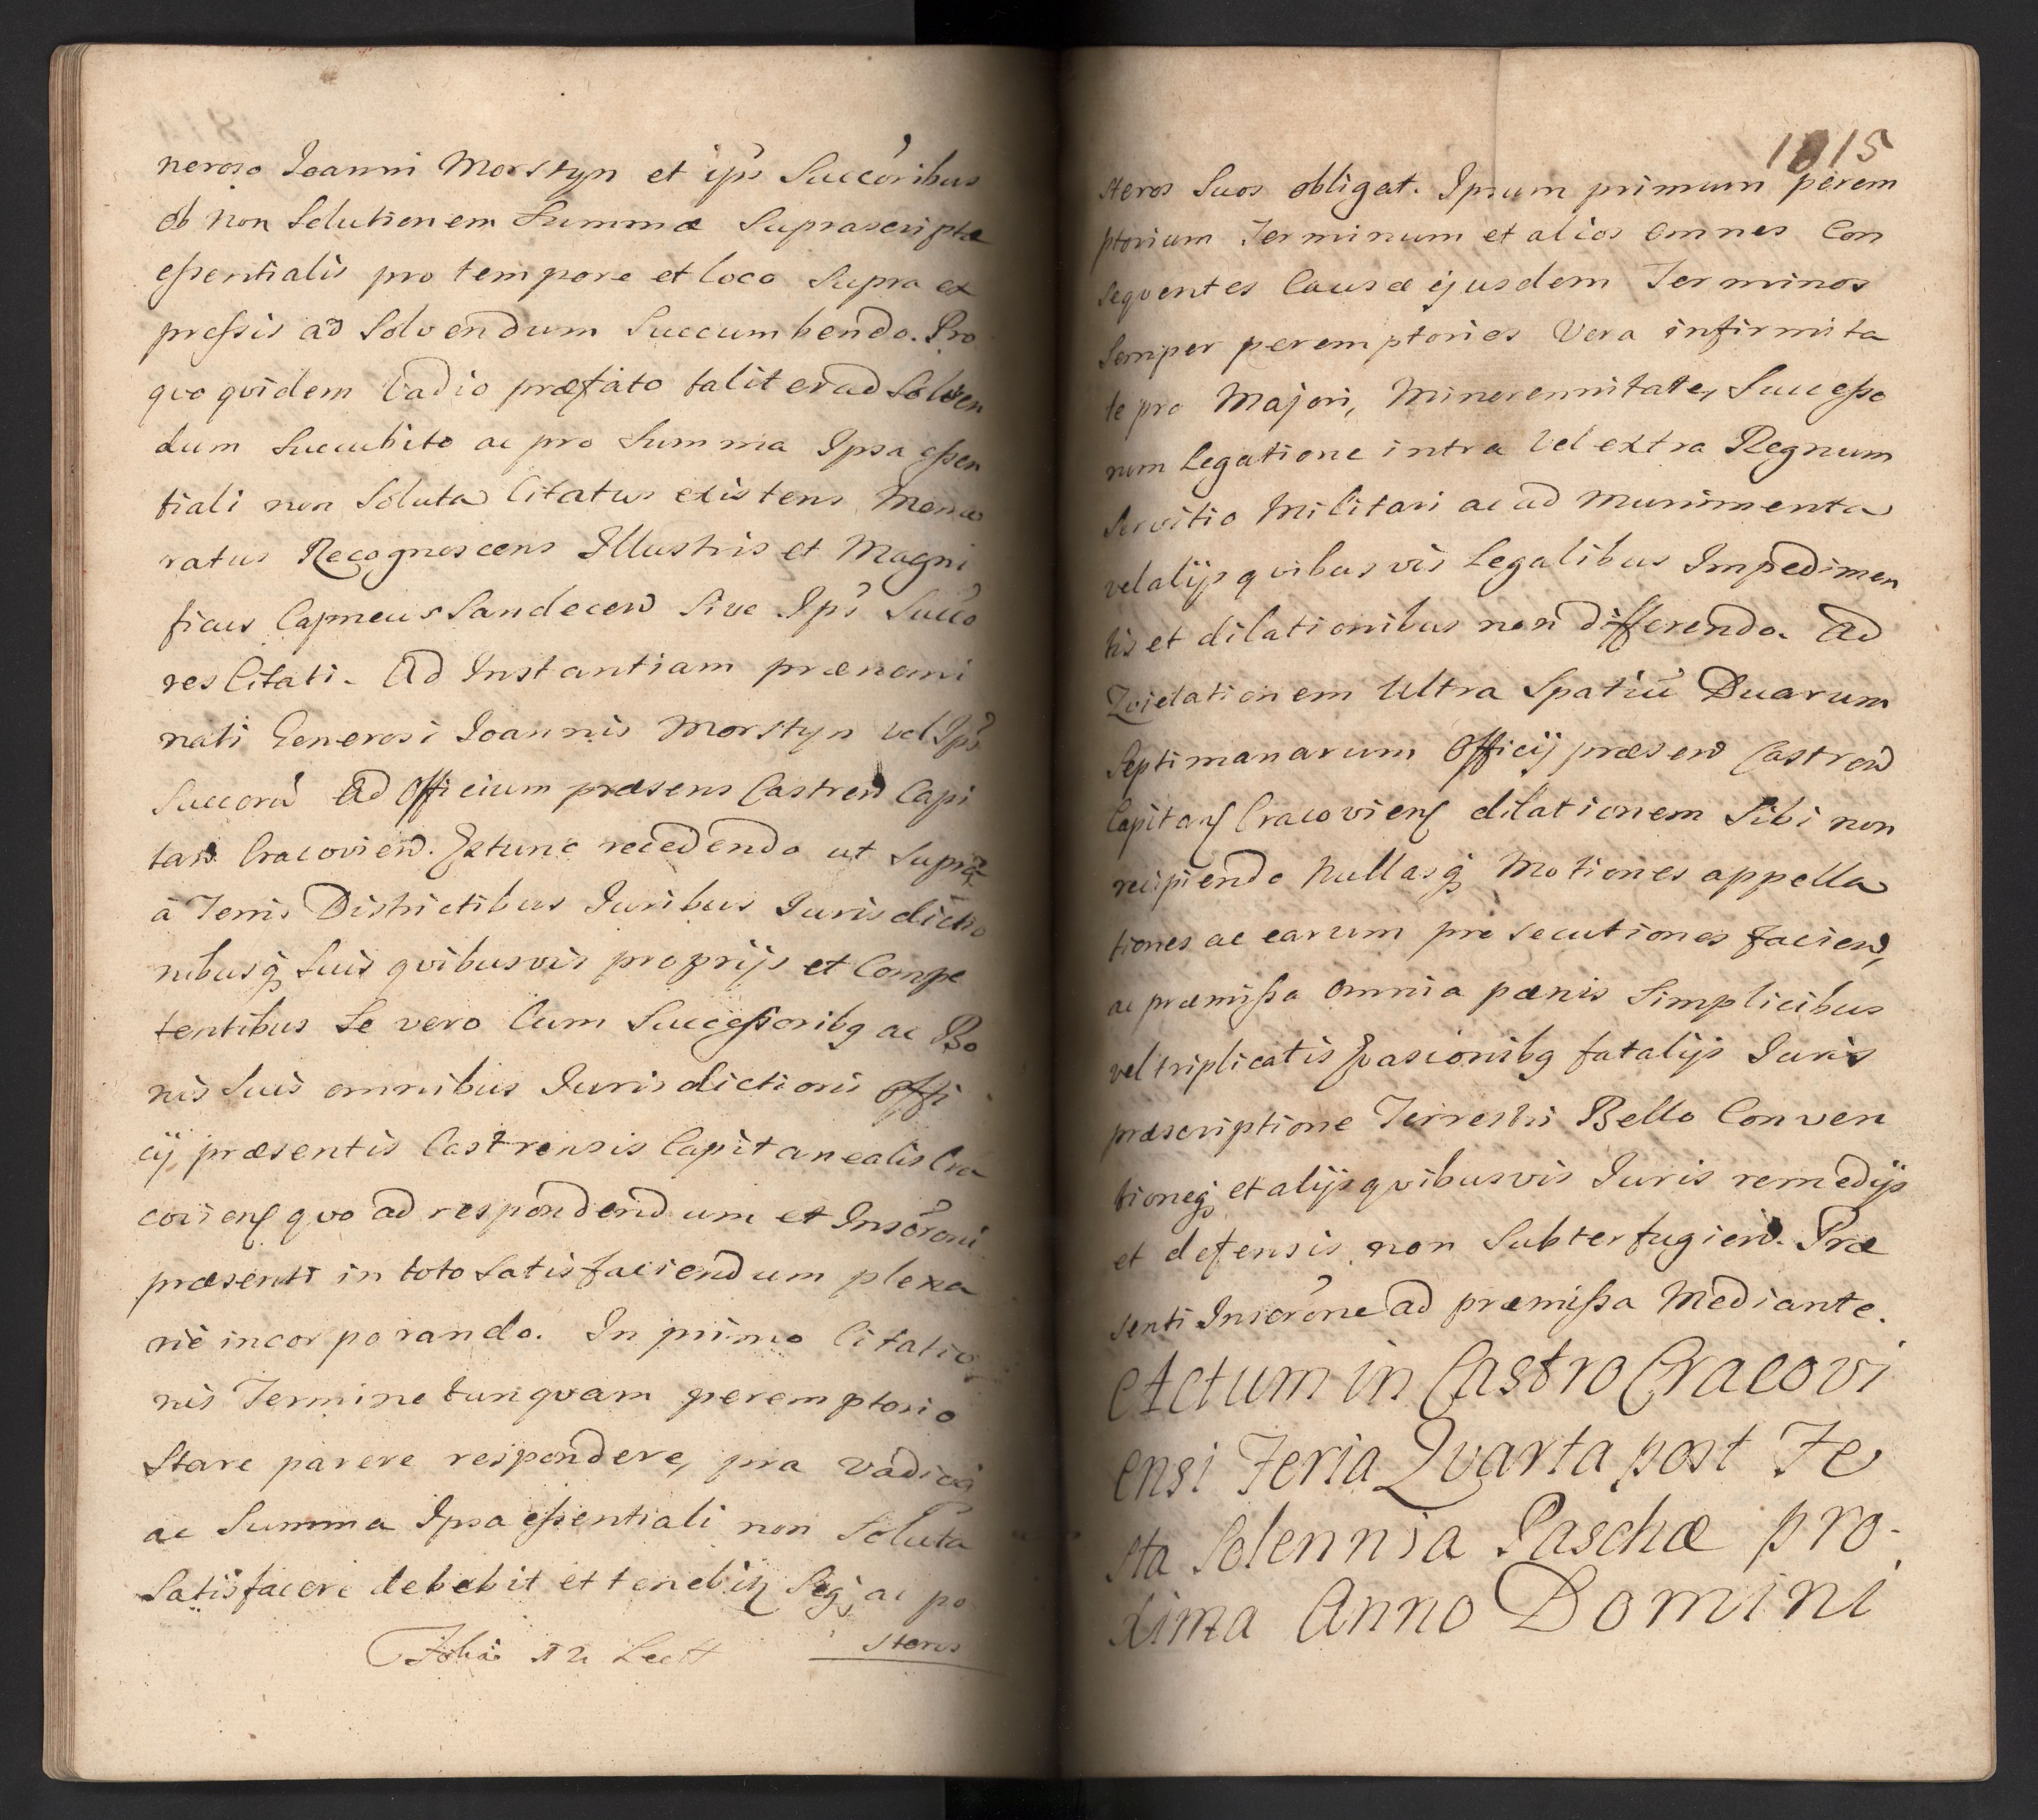 neroso Ioanni Morstyn et ips Succoribus
ob non Solutionem Summæ Suprascriptæ
eſsentialis pro tempore et loco Supra ex
preſsis ad Solvendum Succumbendo. Pro
quo qvidem Vadio præfato taliter ad Solven
dum Succubito ac pro Summa Ipsa eſsen
tiali non Soluta Citatus existens Memo
ratus Recognoscens Illustris et Magni
ficus Capneus Sandecen Sive Ips Succo
res Citati. Ad Instantiam prænomi
nati Generosi Ioannis Morstyn vel Ips
Succorū Ad Officium præsens Castren Capi
tan Cracovien. Extunc recedendo ut Supra
à Terris Districtibus Iuribus Iurisdictio
nibusq Suis qvibusvis proprijs et Compe
tentibus Se vero Cum Succeſsoribq ac Bo
nis Suis omnibus Iurisdictioni Offi
cij præsentis Castrensis Capitanealis Cra
coviens quo ad respondendum et Inscroni
præsenti in toto Satisfaciendum plena
rie incorporando. In primo Citatio
nis Termino tanqvam peremptorio
Stare parere respondere, pro Vadio
ac Summa Ipsa eſsentiali non Soluta
Satisfacere debebit et tenebit Seq ac po
steros
1815
steros Suos obligat. Ipsum primum perem
ptorium Terminum et alios omnes Con
seqventes Causæ ejusdem Terminos
Semper peremptorios Vera infirmita
te pro Majori, Minorennitate, Succeſso
rum Legatione intra Vel extra Regnum
Servitio Militari ac ad Munimenta
vel alijs qvibusvis Legalibus Impedimen
tis et dilationibus non differendo. Ad
Qvietationem Ultra Spatiū Duarum
Septimanarum Officij præsen Castren
Capitans Cracoviens dilationem Sibi non
recipiendo Nullasq Motiones appella
tiones ac earum prosecutiones facien,
ac præmiſsa omnia pænis Simplicibus
vel triplicatis Evasionibq fatalijs Iuris
præscriptione Terrestri Bello Conven
tioneq et alijs qvibusvis Iuris remedijs
et defensis non Subterfugien. Præ
senti Inscrone ad præmiſsa Mediante.
Actum in Castro Cracovi
ensi Feria Qvarta post Fe
sta Solennia Paschæ pro-
xima Anno Domini